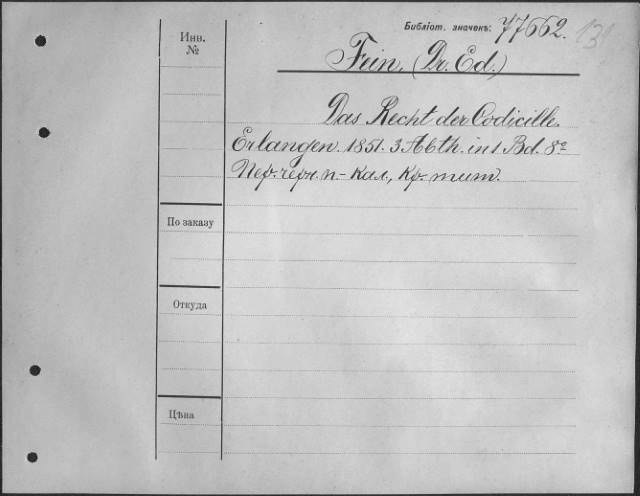 Библіот. значекъ: 77662.
131
Инв.
№
Fein, (Dr. Ed.)
Das Recht der Codicille.
Erlangen. 1851. 3 Abth. in 1 Bd. 8º
Пер. черн. п-кал., Кр. тит.
По заказу
Откуда
Цѣна